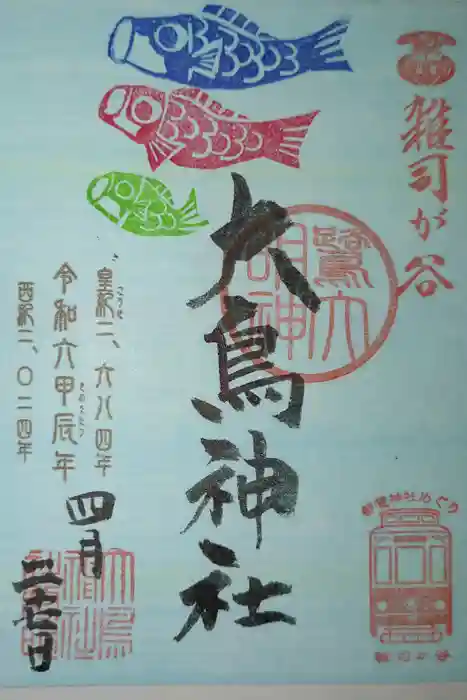 雑司が谷
鷺大明神
大鳥神社
都電神社めぐり
雑司が谷
皇紀二、六八四年
こうき
令和六甲辰年
きのえたつ
西紀二、〇二四年
四月
二十七日
大鳥
神社